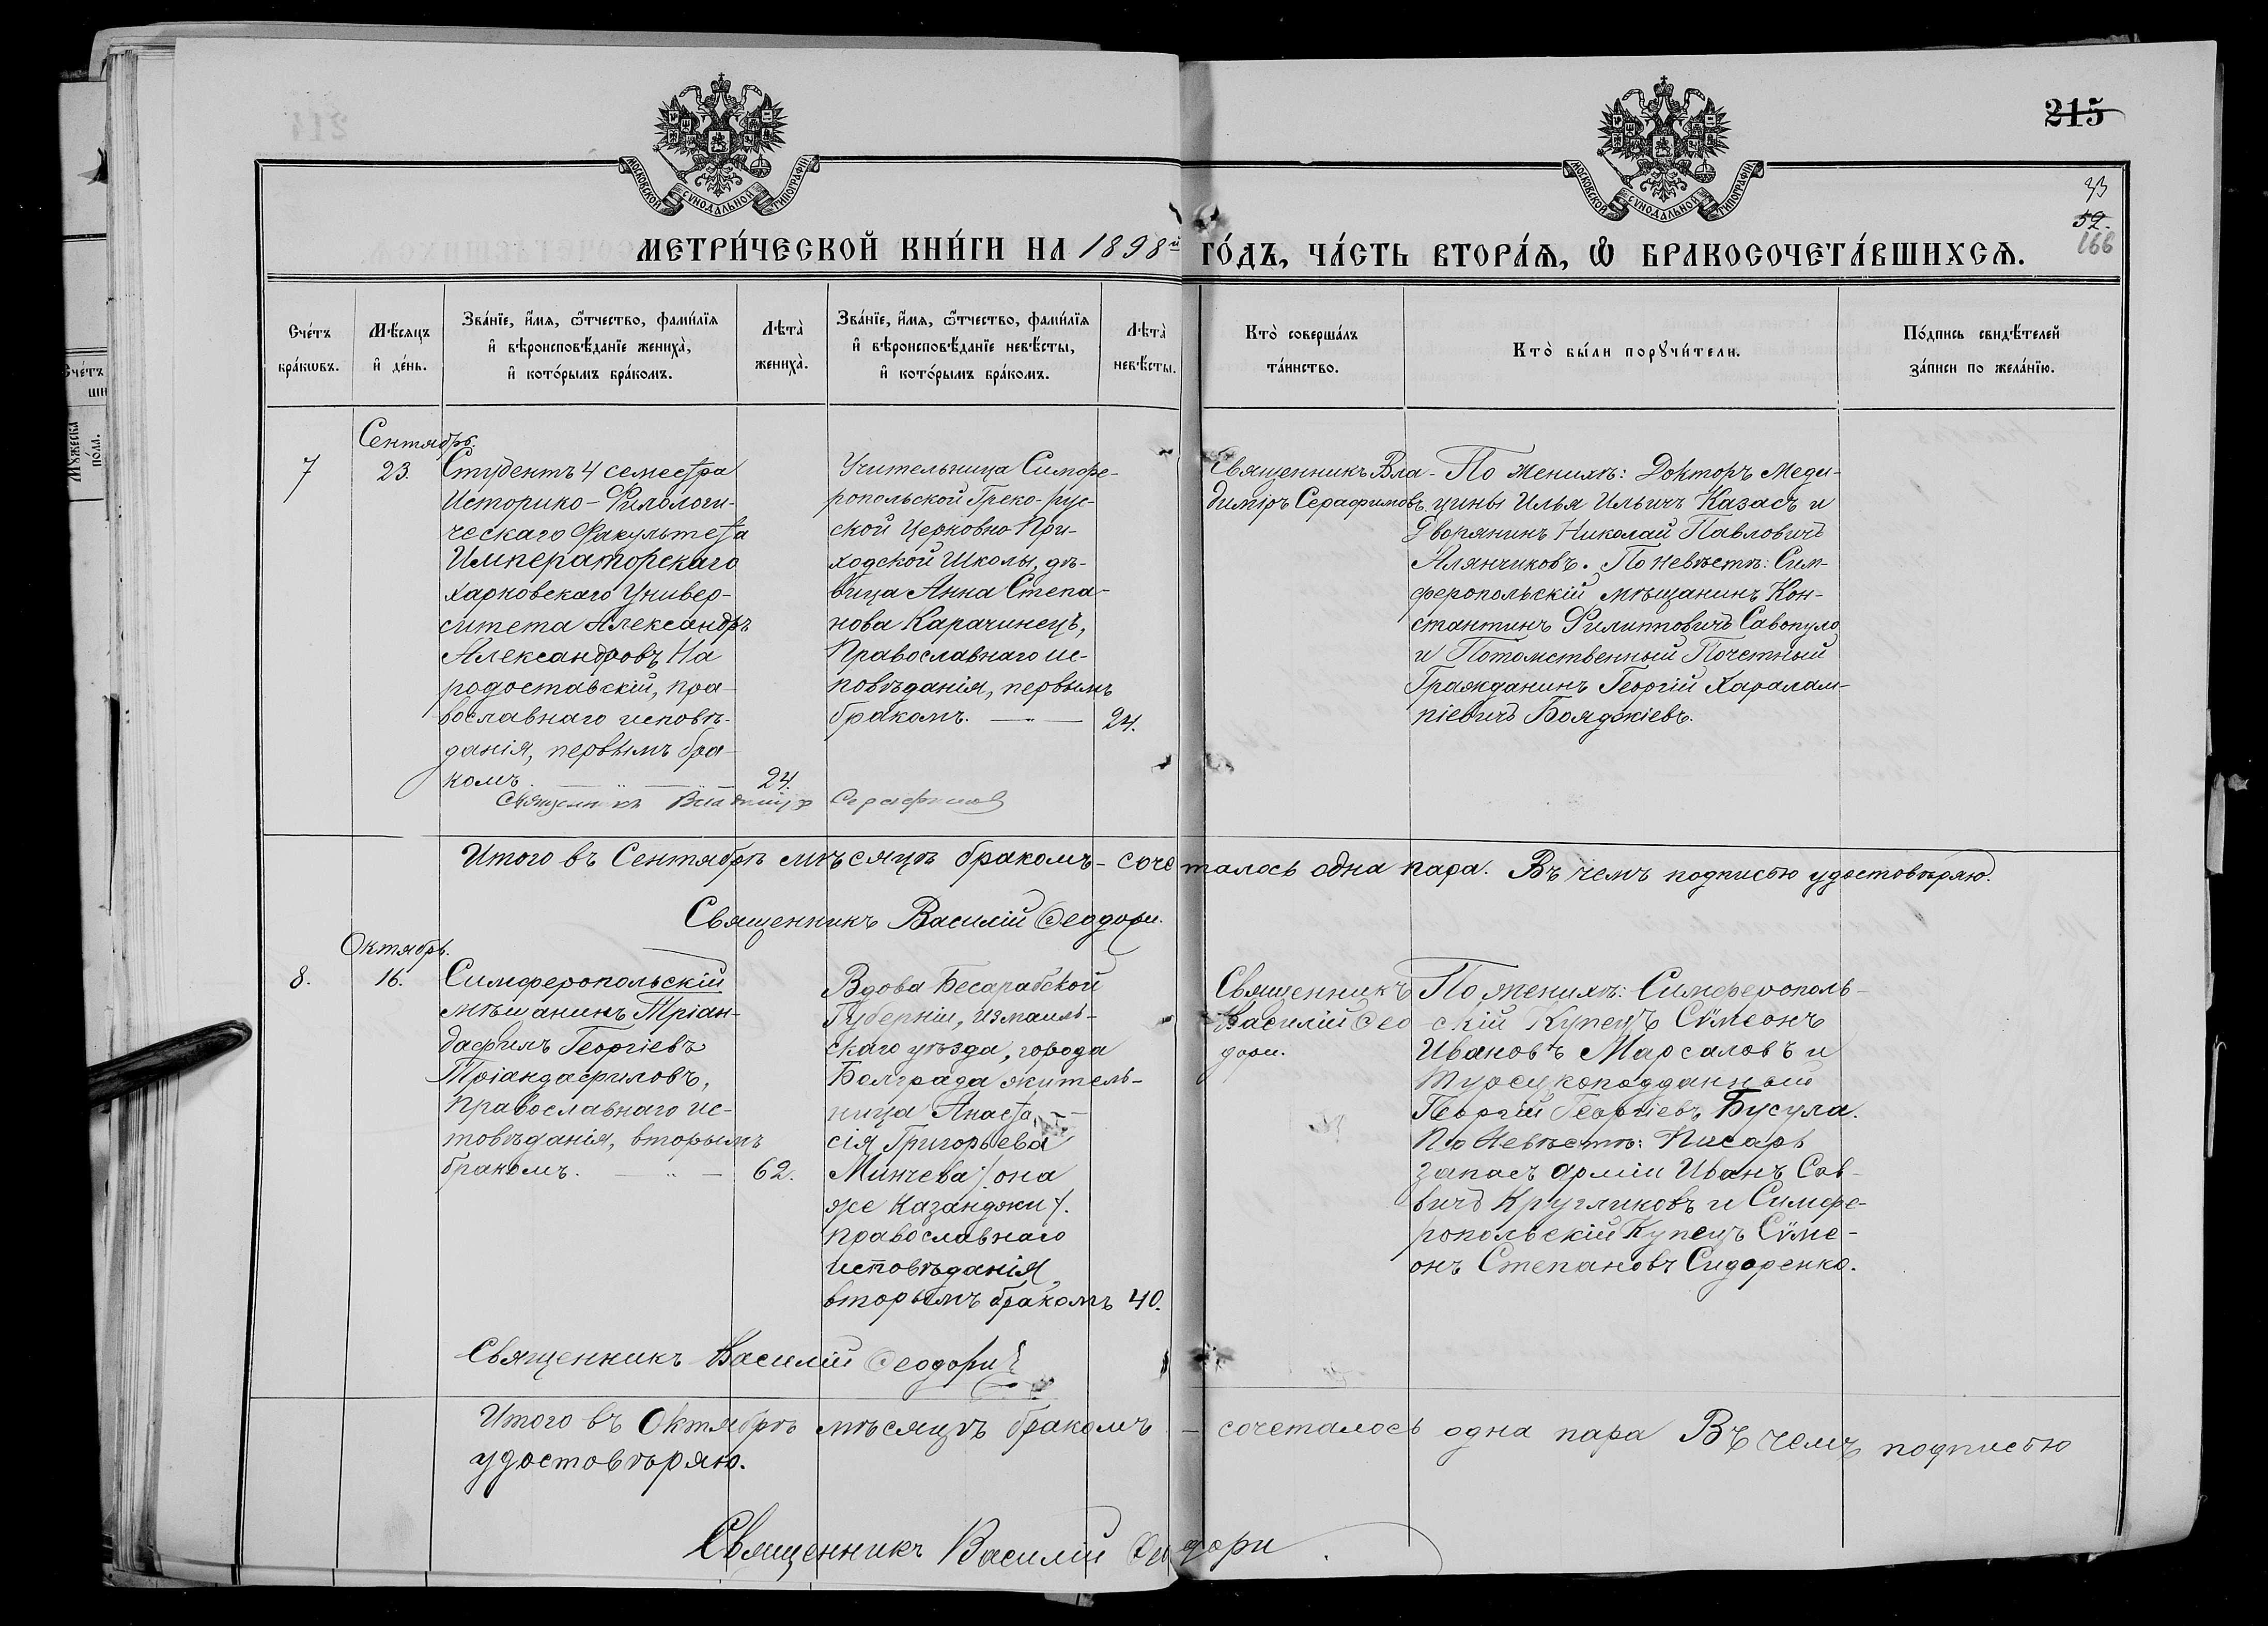 215
МОСКОВСКОЙ СѴНОДАЛЬНОЙ ТИПОГРАФІИ
МОСКОВСКОЙ СѴНОДАЛЬНОЙ ТИПОГРАФІИ
33
52.
166
МЕТРИ́ЧЕСКОЙ КНИ́ГИ НА 1898й ГО́ДЪ, ЧА́СТЬ ВТОРА́Ѧ, Ѽ БРАКОСОЧЕТА́ВШИХСѦ.
Сче́тъ
бра́кѡвъ.
Мѣ́сѧцъ
и҆ де́нь.
Зва́нїе, и҆́мѧ, ѻ҆́тчество, фами́лїѧ
и҆ вѣроисповѣ́данїе жениха̀,
и҆ кото́рымъ бра́комъ.
Лѣта̀
жениха̀.
Зва́нїе, и҆́мѧ, ѻ҆́тчество, фами́лїѧ
и҆ вѣроисповѣ́данїе невѣ́сты,
и҆ кото́рымъ бра́комъ.
Лѣта̀
невѣ́сты.
Кто̀ соверша́лъ
та́инство.
Кто̀ бы́ли порꙋчи́тели.
По́дпись свидѣ́телей
за́писи по жела́нїю.
Сентябрь.
7
23.
Студентъ 4 семестра
Историко-Филологи-
ческаго Факультета
Императорскаго
Харковскаго Универ-
ситета Александръ
Александровъ На
родоставскій, пра-
вославнаго исповѣ-
данія, первымъ бра-
комъ
24.
Учительница Симфе-
ропольской Греко-рус-
ской Церковно При-
ходской Школы, дѣ-
вица Анна Степа-
нова Карачинецъ,
Православнаго ис-
повѣданія, первымъ
бракомъ.
24.
Священникъ Вла-
диміръ Серафимовъ.
По женихѣ: Докторъ Меди-
цины Илья Ильичъ Казасъ и
Дворянинъ Николай Павловичъ
Алянчиковъ. По невѣстѣ: Сим-
феропольскій мѣщанинъ Кон-
стантинъ Филипповичъ Савопуло
и Потомственный Почетный
Гражданинъ Георгій Харалам-
піевичъ Бояджіевъ.
Священникъ Владиміръ Серафимовъ
Итого въ Сентябрѣ мѣсяцѣ бракомъ-сочеталось одна пара. Въ чемъ подписью удостовѣряю.
Священникъ Василій Ѳеодори.
Октябрь.
8.
16.
Симферопольскій
мѣщанинъ Тріан-
дафилъ Георгіевъ
Тріандафиловъ,
православнаго ис-
повѣданія, вторымъ
бракомъ.
62.
Вдова Бесарабской
Губерніи, Измаиль-
скаго уѣзда, города
Болграда житель-
ница Анаста-
сія Григорьева
Минчева /: она
же Казанджи :/.
православнаго
исповѣданія,
вторымъ бракомъ
40.
Священникъ
Василій Ѳео
дори.
По женихѣ: Симферополь-
скій Купецъ Сѷмеонъ
Ивановъ Марсаловъ и
Турецкоподданный
Георгій Георгіевъ Бусула.
По Невѣстѣ: Писарь
запас Арміи Иванъ Сав-
вичъ Кругликовъ и Симфе-
ропольскій Купецъ Сѷме-
онъ Степановъ Сидоренко.
Священникъ Василій Ѳеодори
Итого въ Октябрѣ мѣсяцѣ бракомъ-сочеталось одна пара Въ чемъ подписью
удостовѣряю.
Священникъ Василій Ѳеодори